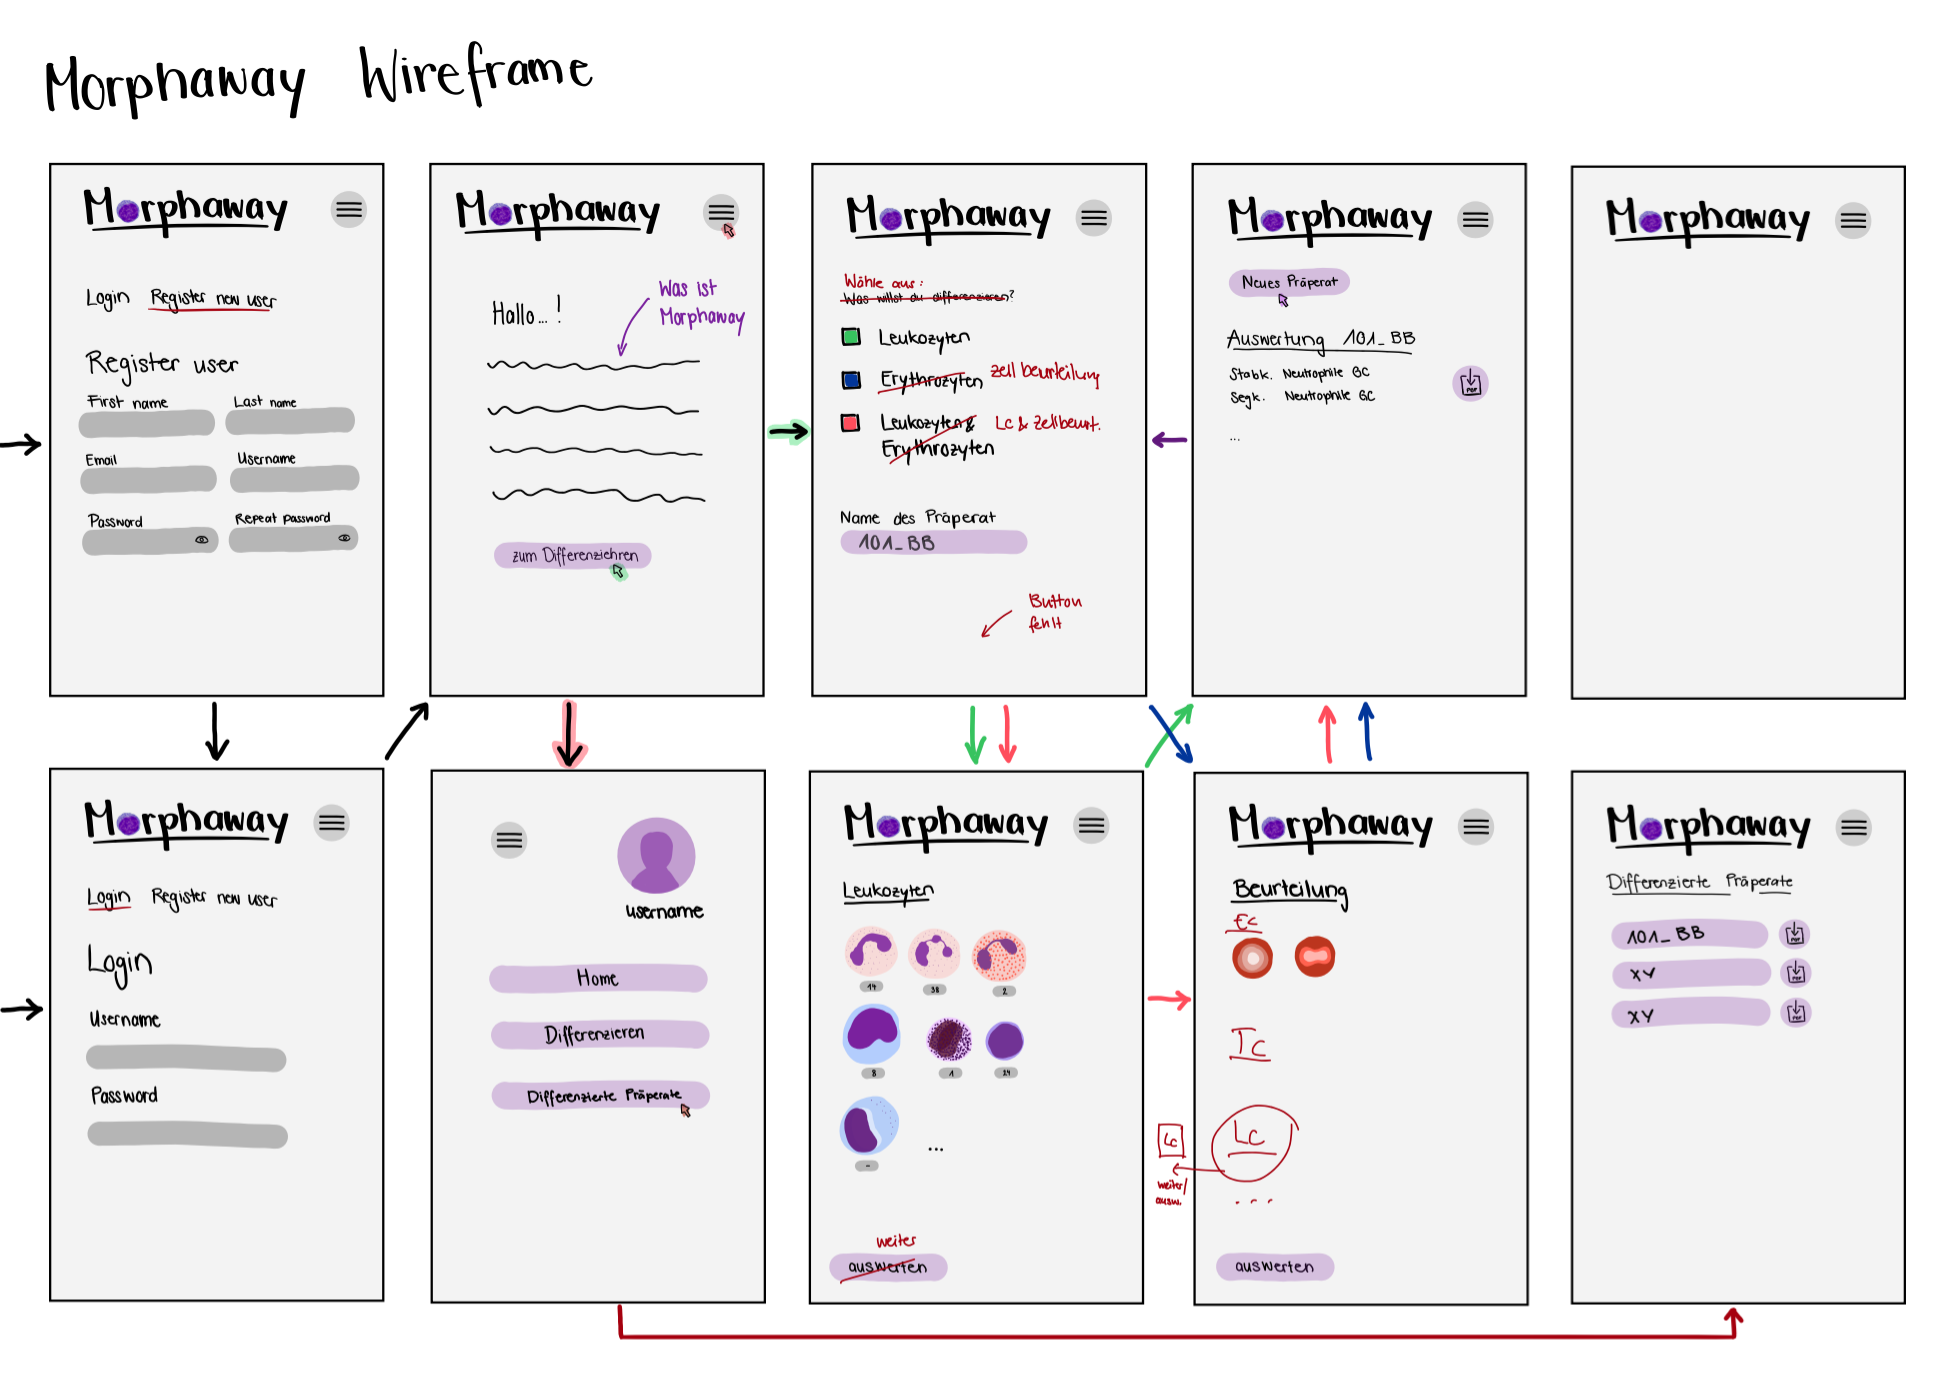 Morphaway Wireframe
Morphaway
Login Register new user
Register user
First name Last name
Email Username
Password Repeat password
Morphaway
Was ist
Morphaway
Hallo... !
zum Differenziehren
Morphaway
Wähle aus:
Was willst du differenzieren?
Leukozyten
Erythrozyten zellbeurteilung
Leukozyten & Lc & Zellbeurt.
Erythrozyten
Name des Präperat
101_BB
Button
fehlt
Morphaway
Neues Präperat
Auswertung 101_BB
Stabk. Neutrophile GC
PDF
Segk. Neutrophile GC
...
Morphaway
Morphaway
Login Register new user
Login
Username
Password
username
Home
Differenzieren
Differenzierte Präperate
Morphaway
Leukozyten
14 38 2
8 1 24
-
...
weiter
auswerten
Morphaway
Beurteilung
Ec
Tc
Lc
Lc
weiter/
ausw.
...
auswerten
Morphaway
Differenzierte Präperate
101_BB PDF
XY PDF
XY PDF